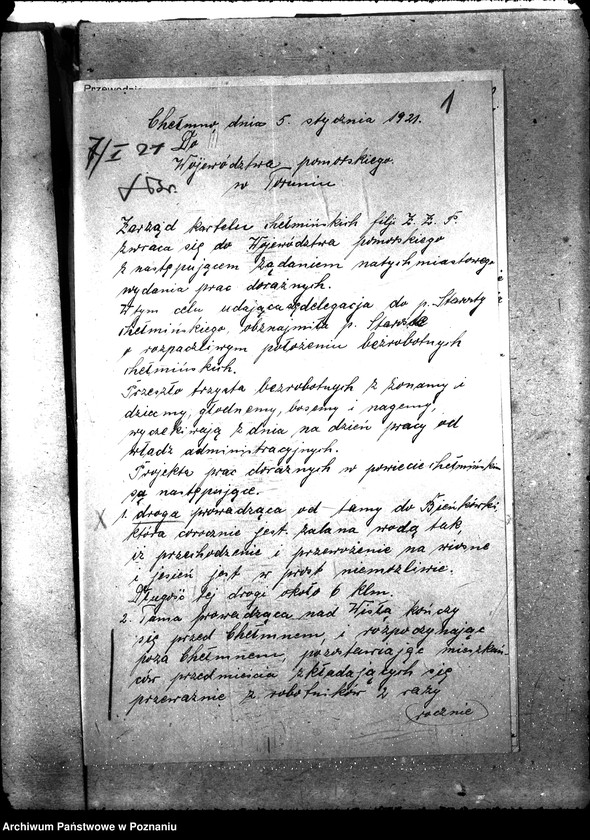 Przewodnic
1
Chełmno, dnia 5. stycznia 1921.
7/I 21 Do
Województwa pomorskiego.
w Toruniu
Zarząd kartelu chełmińskich filji Z. Z. P.
zwraca się do Województwa pomorskiego
z następującem żądaniem natychmiastowego
wydania prac doraźnych.
W tym celu udająca się delegacja do p. Starosty
chełmińskiego, obznajmiła p. Starostę
o rozpaczliwym położeniu bezrobotnych
chełmińskich.
Przeszło trzysta bezrobotnych z żonamy i
dziecmy, głodnemy, bosemy i nagemy,
wyczekiwają z dnia na dzień pracy od
władz administracyjnych.
Projekta prac doraźnych w powiecie chełmińskim
są następujące.
1. droga prowadząca od tamy do Bieńkówki,
która corocznie jest zalana wodą tak,
iż przechodzenie i przewożenie na wiosnę
i jesień jest w prost niemożliwie.
Długość tej drogi około 6 klm.
2. Tama prowadząca nad Wisłą kończy
się przed Chełmnem, i rozpoczynając
poza Chełmnem, pozostawiając mieszkań-
ców przedmieścia składających się
przeważnie z robotników 2 razy
rocznie
Archiwum Państwowe w Poznaniu